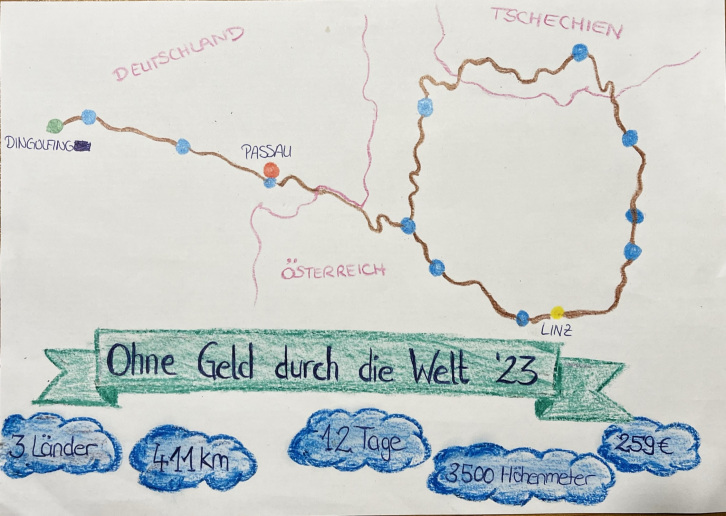 TSCHECHIEN
DEUTSCHLAND
DINGOLFING
PASSAU
ÖSTERREICH
LINZ
Ohne Geld durch die Welt '23
3 Länder
411 km
12 Tage
3500 Höhenmeter
259 €